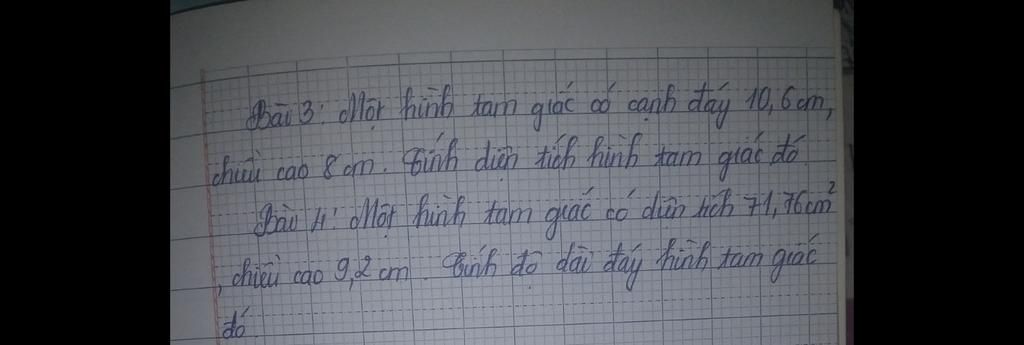 Bài 3: Một hình tam giác có cạnh đáy 10,6 cm,
chiều cao 8 cm. Tính diện tích hình tam giác đó
Bài 4: Một hình tam giác có diện tích 71,76 cm²
, chiều cao 9,2 cm. Tính độ dài đáy hình tam giác
đó